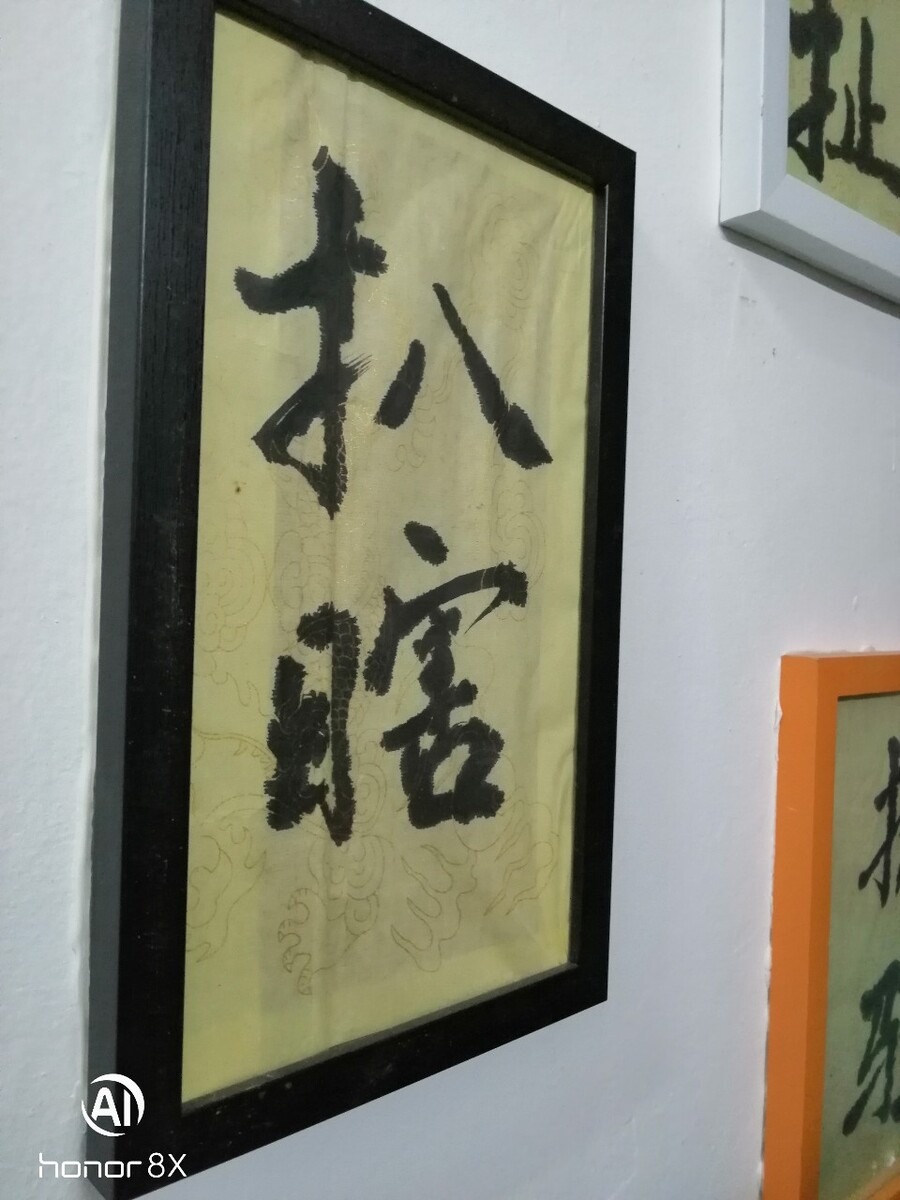 扒
瞎
扯
AI
honor 8X